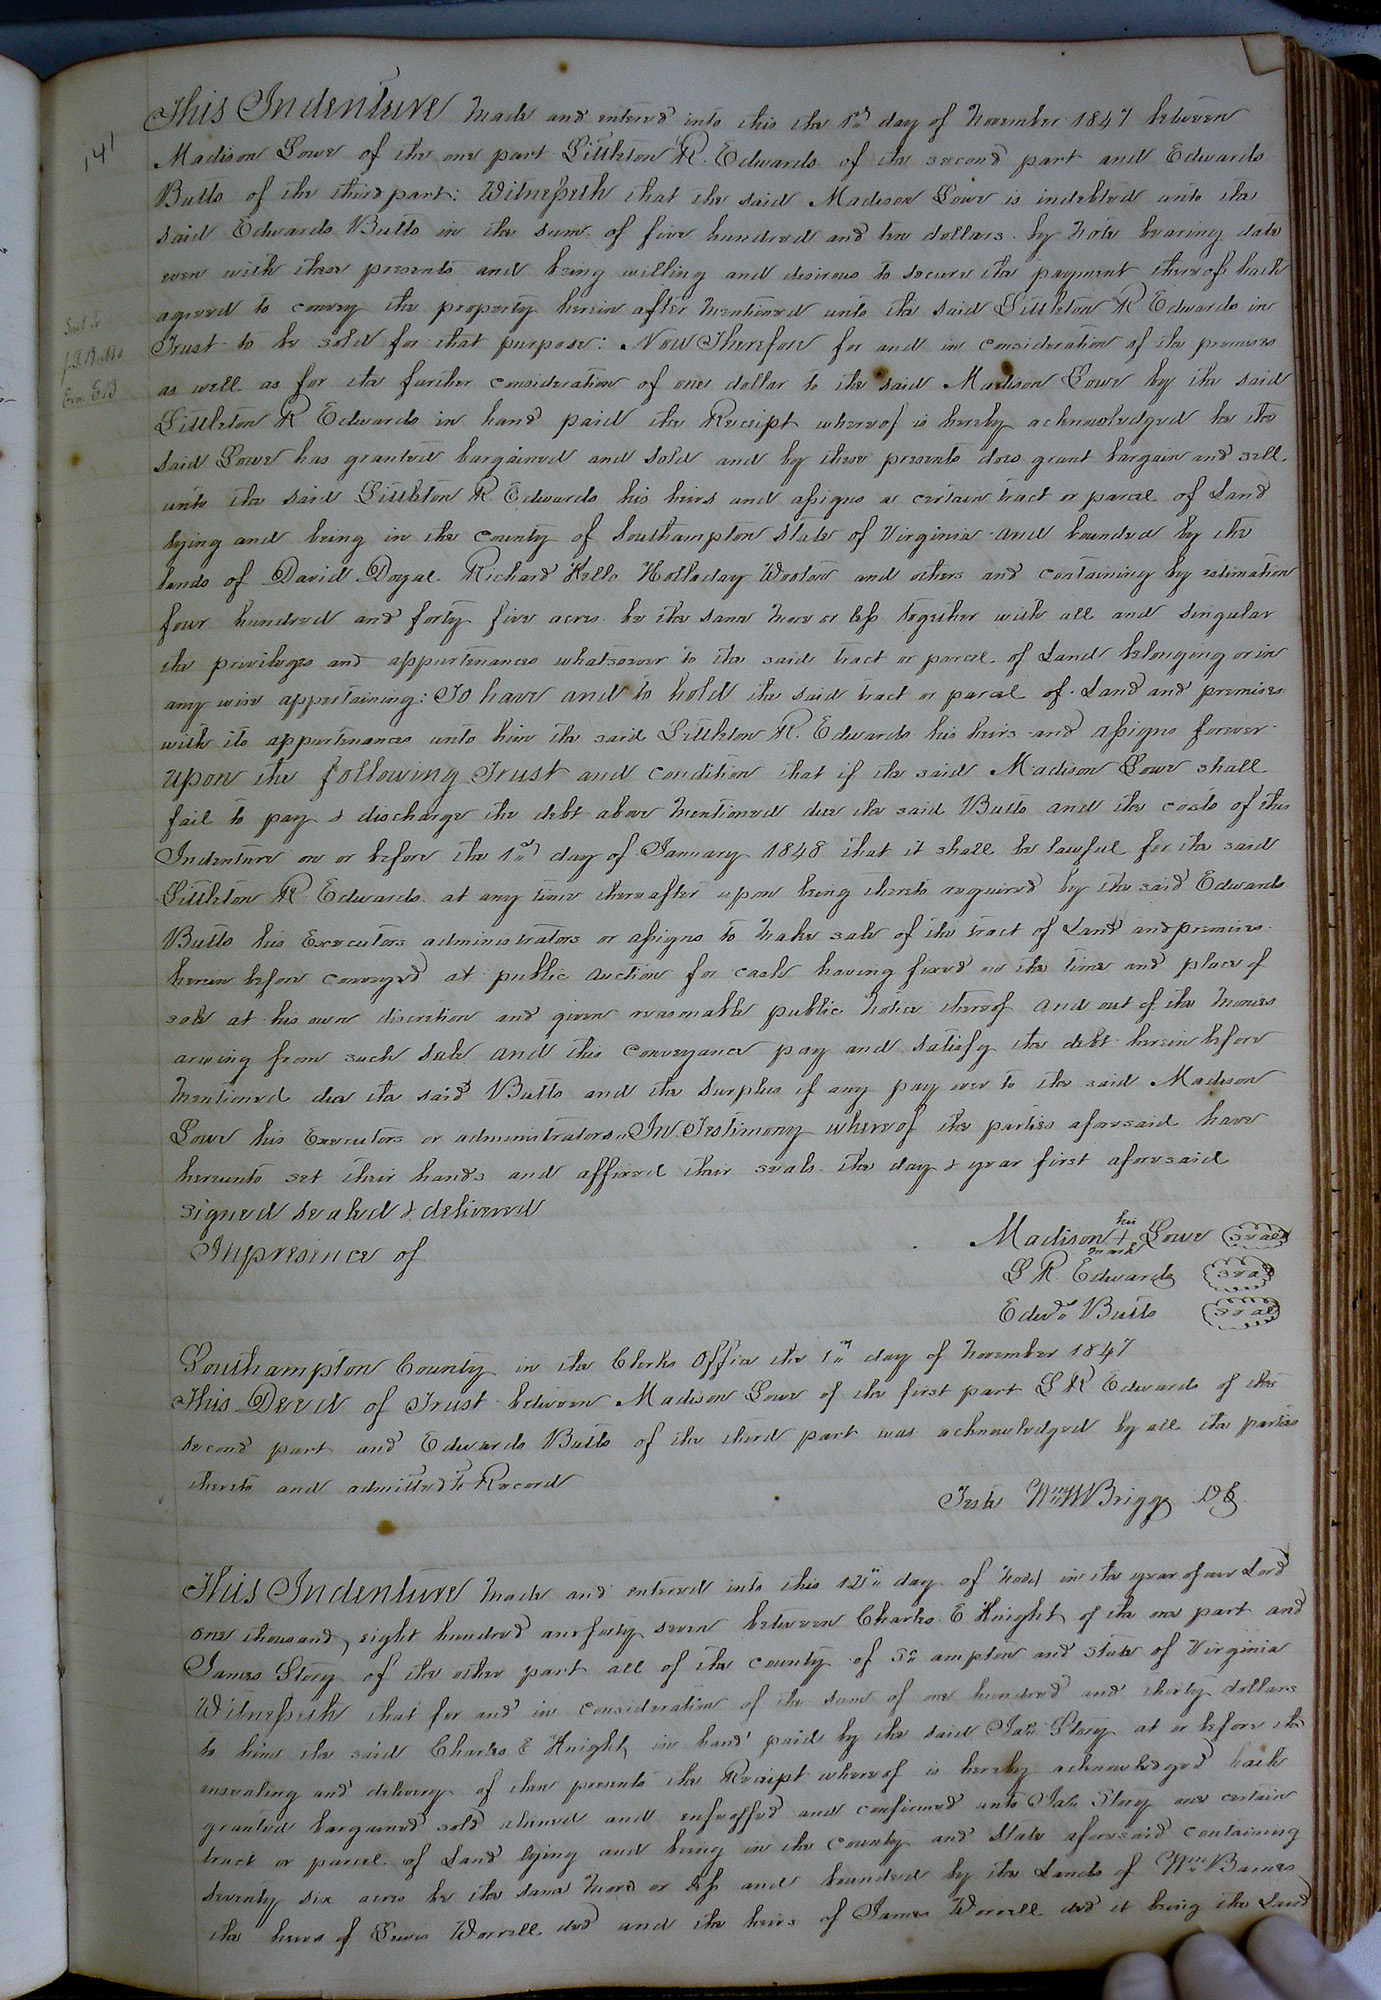 141
This Indenture Made and entered into this the 1st day of November 1847 between
Madison Lowe of the one part Littleton R. Edwards of the second part and Edwards
Butts of the third part: Witnesseth that the said Madison Lowe is indebted unto the
said Edwards Butts in the sum of five hundred and ten dollars by Note bearing date
even with these presents and being willing and desirous to secure the payment thereof hath
agreed to convey the property herein after mentioned unto the said Littleton R Edwards in
Sent to
Trust to be sold for that purpose: Now Therefore for and in consideration of the premises
J. Butts
as well as for the further consideration of one dollar to the said Madison Lowe by the said
Exr.
Littleton R Edwards in hand paid the Receipt whereof is hereby acknowledged he the
said Lowe has granted bargained and sold and by these presents does grant bargain and sell
unto the said Littleton R. Edwards his heirs and assigns a certain tract or parcel of Land
lying and being in the County of Southampton State of Virginia and bounded by the
lands of David Doyal Richard Kello Holladay Wooton and others and containing by estimation
four hundred and forty five acres be the same more or less together with all and singular
the privileges and appurtenances whatsoever to the said tract or parcel of Land belonging or in
any wise appertaining: To have and to hold the said tract or parcel of Land and premises
with its appurtenances unto him the said Littleton R. Edwards his heirs and assigns forever
upon the following Trust and condition that if the said Madison Lowe shall
fail to pay & discharge the debt above mentioned due the said Butts and the costs of this
Indenture on or before the 1st day of January 1848 that it shall be lawful for the said
Littleton R Edwards at any time thereafter upon being thereto required by the said Edwards
Butts his Executors administrators or assigns to make sale of the tract of Land and premises
herein before conveyed at public auction for cash having fixed on the time and place of
sale at his own discretion and given reasonable public notice thereof and out of the monies
arising from such sale and this conveyance pay and satisfy the debt herein before
mentioned due the said Butts and the surplus if any pay over to the said Madison
Lowe his Executors or administrators In Testimony whereof the parties aforesaid have
hereunto set their hands and affixed their seals the day & year first aforesaid
signed sealed & delivered
In presence of
his
Madison + Lowe seal
mark
L R. Edwards seal
Edwds Butts seal
Southampton County in the Clerks Office the 1st day of November 1847
This Deed of Trust between Madison Lowe of the first part L R Edwards of the
second part and Edwards Butts of the third part was acknowledged by all the parties
thereto and admitted to Record
Teste Wm W Briggs DC
This Indenture Made and entered into this 12th day of Novr in the year of our Lord
one thousand eight hundred and forty seven between Charles E Knight of the one part and
James Story of the other part all of the county of So ampton and state of Virginia
Witnesseth that for and in consideration of the sum of one hundred and thirty dollars
to him the said Charles E Knight in hand paid by the said Jas Story at or before the
ensealing and delivery of these presents the Receipt whereof is hereby acknowledged hath
granted bargained sold aliened and enfeoffed and confirmed unto Jas Story one certain
tract or parcel of Land lying and being in the County and State aforesaid containing
seventy six acres be the same more or less and bounded by the Lands of Wm Barnes
the heirs of Lewis Worrell decd and the heirs of James Worrell decd it being the Land